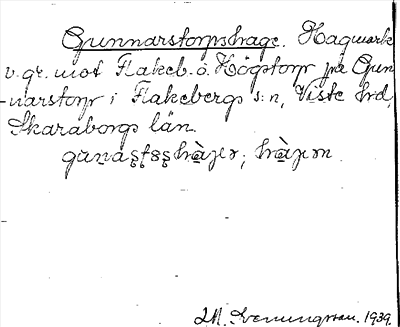 Gunnarstorpshage. Hagmark
v. gr. mot Flakeb. o. Högstorp på Gun-
narstorp i Flakebergs s:n, Viste hrd,
Skaraborgs län.
J. M. Svenungsson. 1939.